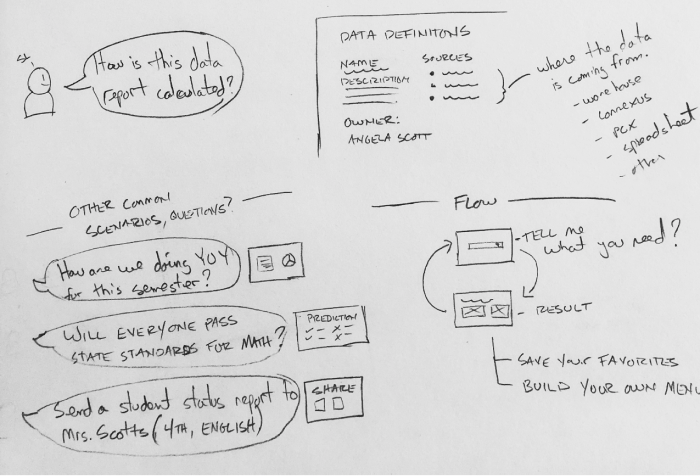 How is this data
report calculated?
DATA DEFINITONS
NAME
DESCRIPTION
SOURCES
OWNER:
ANGELA SCOTT
where the data
is coming from.
- warehouse
- connexus
- PCX
- spreadsheet
- other
OTHER COMMON
SCENARIOS, QUESTIONS?
How are we doing YOY
for this semester?
WILL EVERYONE PASS
STATE STANDARDS FOR MATH?
PREDICTION
Send a student status report to
Mrs. Scotts (4TH, ENGLISH)
SHARE
FLOW
- TELL me
what you need?
- RESULT
- SAVE YOUR FAVORITES
- BUILD YOUR OWN MENU